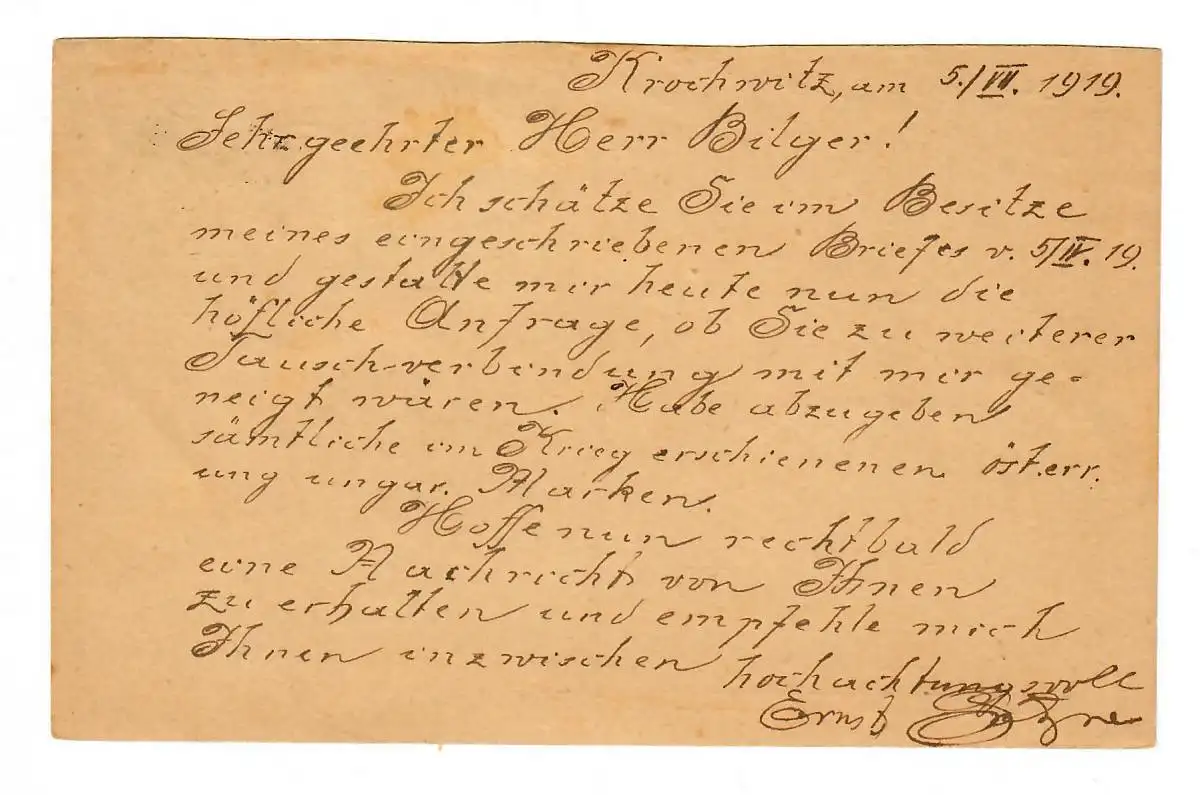 Krochwitz, am 5./VII. 1919.
Sehr geehrter Herr Bilger!
Ich schätze Sie im Besitze
meines eingeschriebenen Briefes v. 5/IV. 19.
und gestatte mir heute nun die
höfliche Anfrage, ob Sie zu weiterer
Tausch-verbindung mit mir ge-
neigt wären. Habe abzugeben
sämtliche im Krieg erschienenen österr.
ung ungar. Marken.
Hoffe nun recht bald
eine Nachricht von Ihnen
zu erhalten und empfehle mich
Ihnen inzwischen hochachtungsvoll
Ernst